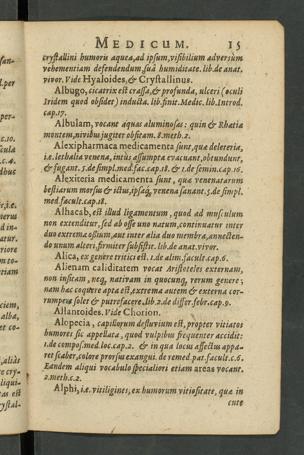 MEDICUM. 15
crystallini humoris aquea, ad ipsum, visibilium adversum
vehementiam defendendum, suâ humiditate. lib. de anat.
vivor. Vide Hyaloides, & Crystallinus.
Albugo, cicatrix est crassa, & profunda, ulceri (oculi
Iridem quod obsidet) inducta. lib. finit. Medic. lib. Introd.
cap. 17.
Albulam, vocant aquas aluminosas: quin & Rhatia
montem, nivibus jugiter obsitam. 8. meth. 2.
Alexipharmaca medicamenta sunt, quæ deleteria,
i.e. lethalia venena, intùs assumpta evacuant, obtundunt,
& fugant. 5. de simpl. med. fac. cap. 18. & 1. de semin. cap. 16.
Alexiteria medicamenta sunt, quæ venenatarum
bestiarum morsus & ictus, ipsaq; venena sanant. 5. de simpl.
med. facult. cap. 18.
Alhacab, est illud ligamentum, quod ad musculum
non extenditur, sed ab osse uno natum, continuatur inter
duo extrema ossium, aut inter alia duo membra, annecten-
do unum alteri, firmiter subsistit. lib. de anat. vivor.
Alica, ex genere tritici est. 1. de alim. facult. cap. 6.
Alienam caliditatem vocat Aristoteles externam,
non insitam, neq; nativam in quocunq; rerum genere;
nam hac cogitere apta est, extrema autem & externa cor-
rumpere solet & putrefacere. lib. 2. de differ. febr. cap. 9.
Allantoides. Vide Chorion.
Alopecia, capillorum defluvium est, propter vitiatos
humores sic appellata, quod vulpibus frequenter accidit:
1. de compos. med. loc. cap. 2. & in qua locus affectus appa-
ret scaber, colore prorsus exangui. de remed. pat. facult. c. 6.
Eandem aliqui vocabulo specialiori etiam areas vocant.
2. meth. c. 2.
Alphi, i.e. vitiligines, ex humorum vitiositate, quæ in
cute